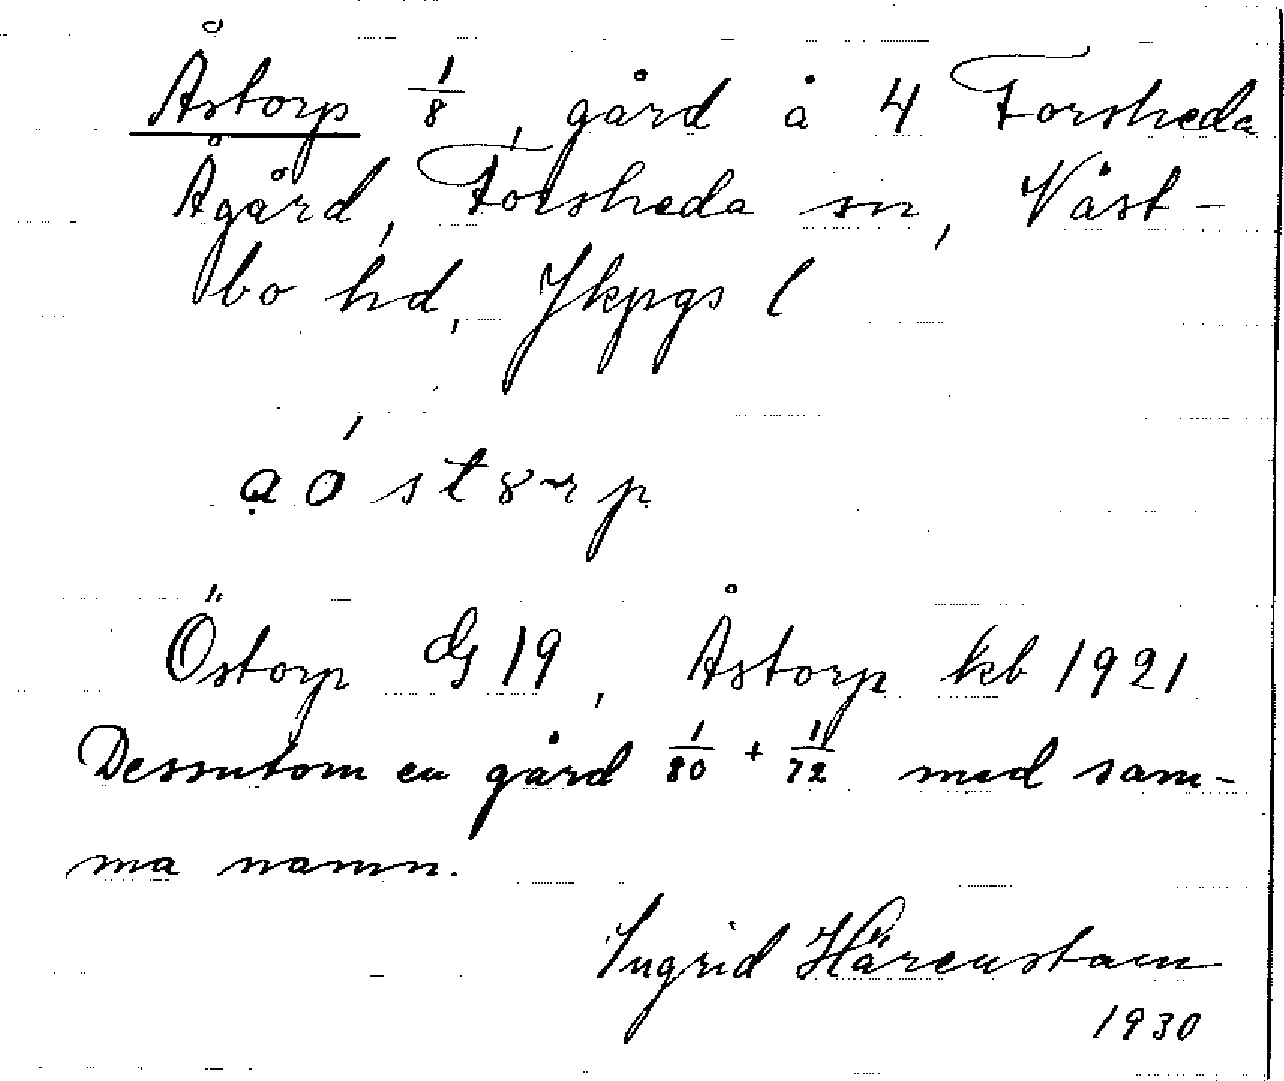 Åstorp 1/8, gård å 4 Forsheda
Ågård, Forsheda sn, Väst-
bo hd, Jkpgs l
Östorp GS 19, Åstorp kb 1921
Dessutom en gård 1/80 + 1/72 med sam-
ma namn.
Ingrid Härenstam
1930